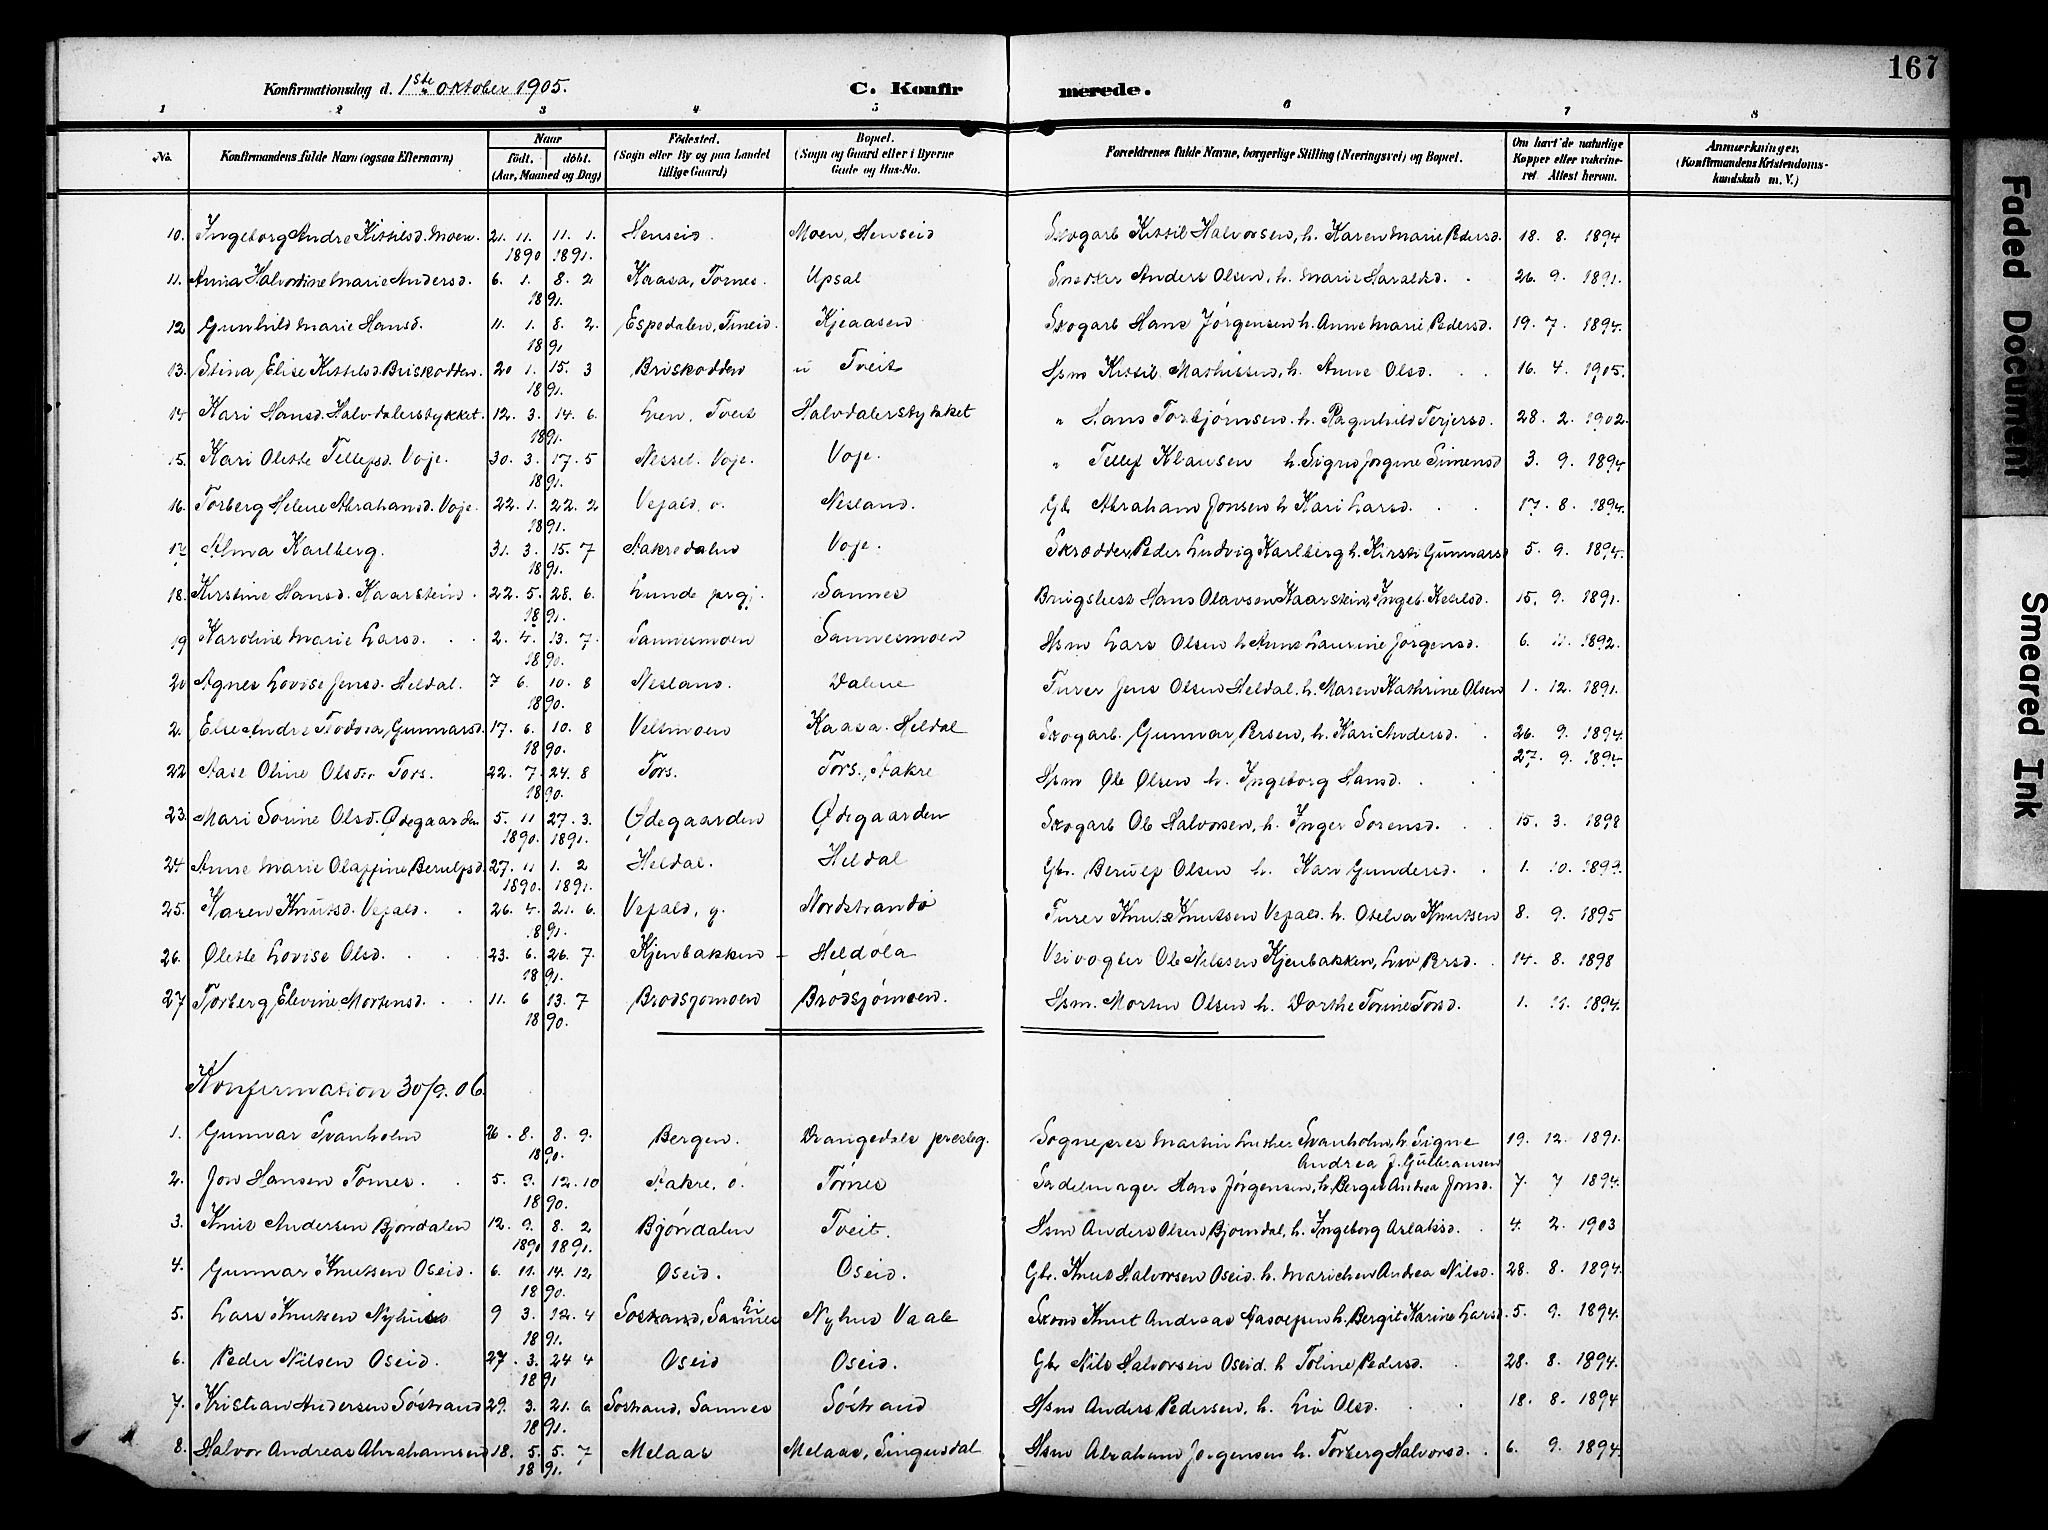 167
Konfirmationsdag d. 1ste oktober 1905. C. Konfir merede.
1 2 3 4 5 6 7 8
No. Konfirmandens fulde Navn (ogsaa Efternavn) Naar født, døbt. (Aar, Maaned og Dag) Fødested. (Sogn eller By og paa Landet tillige Gaard) Bopæl. (Sogn og Gaard eller i Byerne Gade og Hus-No. Forældrenes fulde Navne, borgerlige Stilling (Næringsvei) og Bopæl. Om havt de naturlige Kopper eller vaccineret Attest herom. Anmærkninger. (Konfirmandens Kristendomskundskab m. V.)
10. Ingeborg Andre Kittilsd. Moen. 21. 11. 11. 1. Henseid. Moen, Henseid Skogarb Kittil Halvorsen, h. Karen Marie Pedersd. 18. 8. 1894
1890 1891.
11. Anna Halvordine Marie Andersd. 6. 1. 8. 2 Kaasa, Tornes. Upsal Anders Olsen, h. Marie Haraldsd. 26. 9. 1891.
1891.
12 Gunhild Marie Hansd. 11. 1. 8. 2. Espedalen, Kjeaasen Skogarb Hans Jörgensen h. Anne Marie Pedersd. 19. 7. 1894.
1891
13. Stina Elise Kittilsd. Briskodden. 20 1. 15. 3 Briskodden Tveit Hsm Kittil Mathissen, h. Anne Olsd. 16. 4. 1905.
1891.
14 Kari Hansd. Halvdalerstykket. 12. 3. 14. 6. Lien, Tveit Halvdalerstykket " Hans Torbjørnsen. h. Ragnhild Terjersd. 28. 2. 1902.
1891.
15. Kari Olette Tellefsd. Voje. 30. 3. 17. 5 Nessel. Voje. Voje. " Tellef Klausen h. Signe Jorgine Simensd 3. 9. 1894
1891.
16. Torberg Helene Abrahamsd. Voje. 22. 1. 22. 2 Vefald. Nesland. Gbr Abraham Jonsen h Kari Larsd. 17. 8. 1894.
1891.
17 Alma Karlberg. 31. 3. 15. 7 Aakredalen Voje. Skrædder, Peder Ludvig Karlberg h. Kirsti Gunnarsd 5. 9. 1894.
1891.
18. Kirstine Hansd. Kaarstein. 22. 5. 28. 6. Lunde prgj. Sannes Brugsbest Hans Olavsen Kaarstein, Ingeb. Ketilsd. 15. 9. 1891.
1891.
19 Karoline Marie Larsd. 2. 4. 13. 7. Sannesmoen Sannesmoen Hsm Lars Olsen h. Anne Laurine Jörgensd. 6. 11. 1892.
1890.
20 Agnes Lovise Jensd. Heldal. 7 6. 10. 8 Nesland. Dalene Furer Jens Olsen Heldal. h. Maren Kathrine Olsen 1. 12. 1891.
1890.
2. Else Andre Todvea, Gunnarsd. 17. 6. 10. 8 Veltmoen Kaasa. Heldal Skogarb. Gunnar, Persen, h. Kari Andersd. 26. 9. 1894.
1890. 27. 9. 1894.
22 Aase Oline Olsdr Tors. 22. 7. 24. 8 Tors. Tors., Aakre Hsm Ole Olsen h. Ingeborg Hansd.
1890.
23. Mari Sorine Olsd. Ødegaarden 5. 11 27. 3. Ødegaarden Ødegaarden Skogarb Ole Halvorsen, h. Inger Sorensd. 15. 3. 1898
1890. 1891.
24. Anne Marie Olaffine Berulfsd. 27. 11 1. 2 Heldal. Heldal Gbr. Berulf Olsen h. Kari Gundersd. 1. 10. 1899.
1890. 1891.
25. Karen Knutsd. Vefald. 26. 4. 21. 6. Vefald, g. Nordstrandö Furer Knut Knutsen Vefald. h. Oselva Knutsen 8. 9. 1895
.891.
26. Olette Lovise Olsd. 23. 6. 26. 7. Kjenbakken - Heldöla Veivogter Ole Nilssen Kjenbakken, Liv Persd. 14. 8. 1898
1891.
27 Torberg Elevine Mortensd. 11. 6 13. 7 Brødsjømoen Brødsjømoen. Hsm. Morten Olsen h. Dorthe Torine Torsd. 1. 11. 1894.
1890.
Konfirmation 30/9. 06.
1. Gunnar Svanholm 26. 8. 8. 9. Bergen. Drangedals presteg. Sognepres Martin Luther Svanholm, h Signe 19. 12. 1891.
1890. Andrea J. Gulbransen
2. Jon Hansen Tornes. 5. 9. 12. 10 Aakre, ö. Tørnes Sadelmager Hans Jørgensen, h. Bergit Andrea Jonsd. 7. 7 1894.
1890.
3. Knut Andersen Bjørndalen 12. 9. 8. 2 Bjørndalen Tveit. Hsm Anders Olsen Bjørndal, h. Ingeborg Aslaksd. 4. 2. 1903
1890 1891.
4. Gunnar Knutsen Oseid. 6. 11. 14. 12 Oseid. Oseid. Gbr. Knut Halvorsen Oseid. h. Marichen Andrea Nilsd. 28. 8. 1894.
1890.
5. Lars Knutsen Nyhus 9 3. 12. 4 Sostrand, Sannes Nyhus Vaale Knut Andreas Aasolfsen h. Bergit Karine Larsd. 5. 9. 1894.
1891.
6. Peder Nilsen Oseid. 27. 3. 24 4 Oseid Oseid. Gbr Nils Halvorsen Oseid. h Toline Pedersd. 28. 8. 1894.
1891
7. Kristian Andersen Söstrand 29. 3. 21. 6. Sostrand, Sannes Söstrand Hsm Anders Pedersen, h. Liv Olsd. 18. 8. 1894
1891.
8. Halvor Andreas Abrahamsen 18. 5. 5. 7 Melaas Melaas, Singusdal Hsm Abraham Jørgensen h Torberg Halvorsd. 6. 9. 1894.
1891.
Faded Document
Smeared Ink